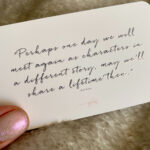 Perhaps one day we will
meet again as characters in
a different story, may we'll
share a lifetime then."